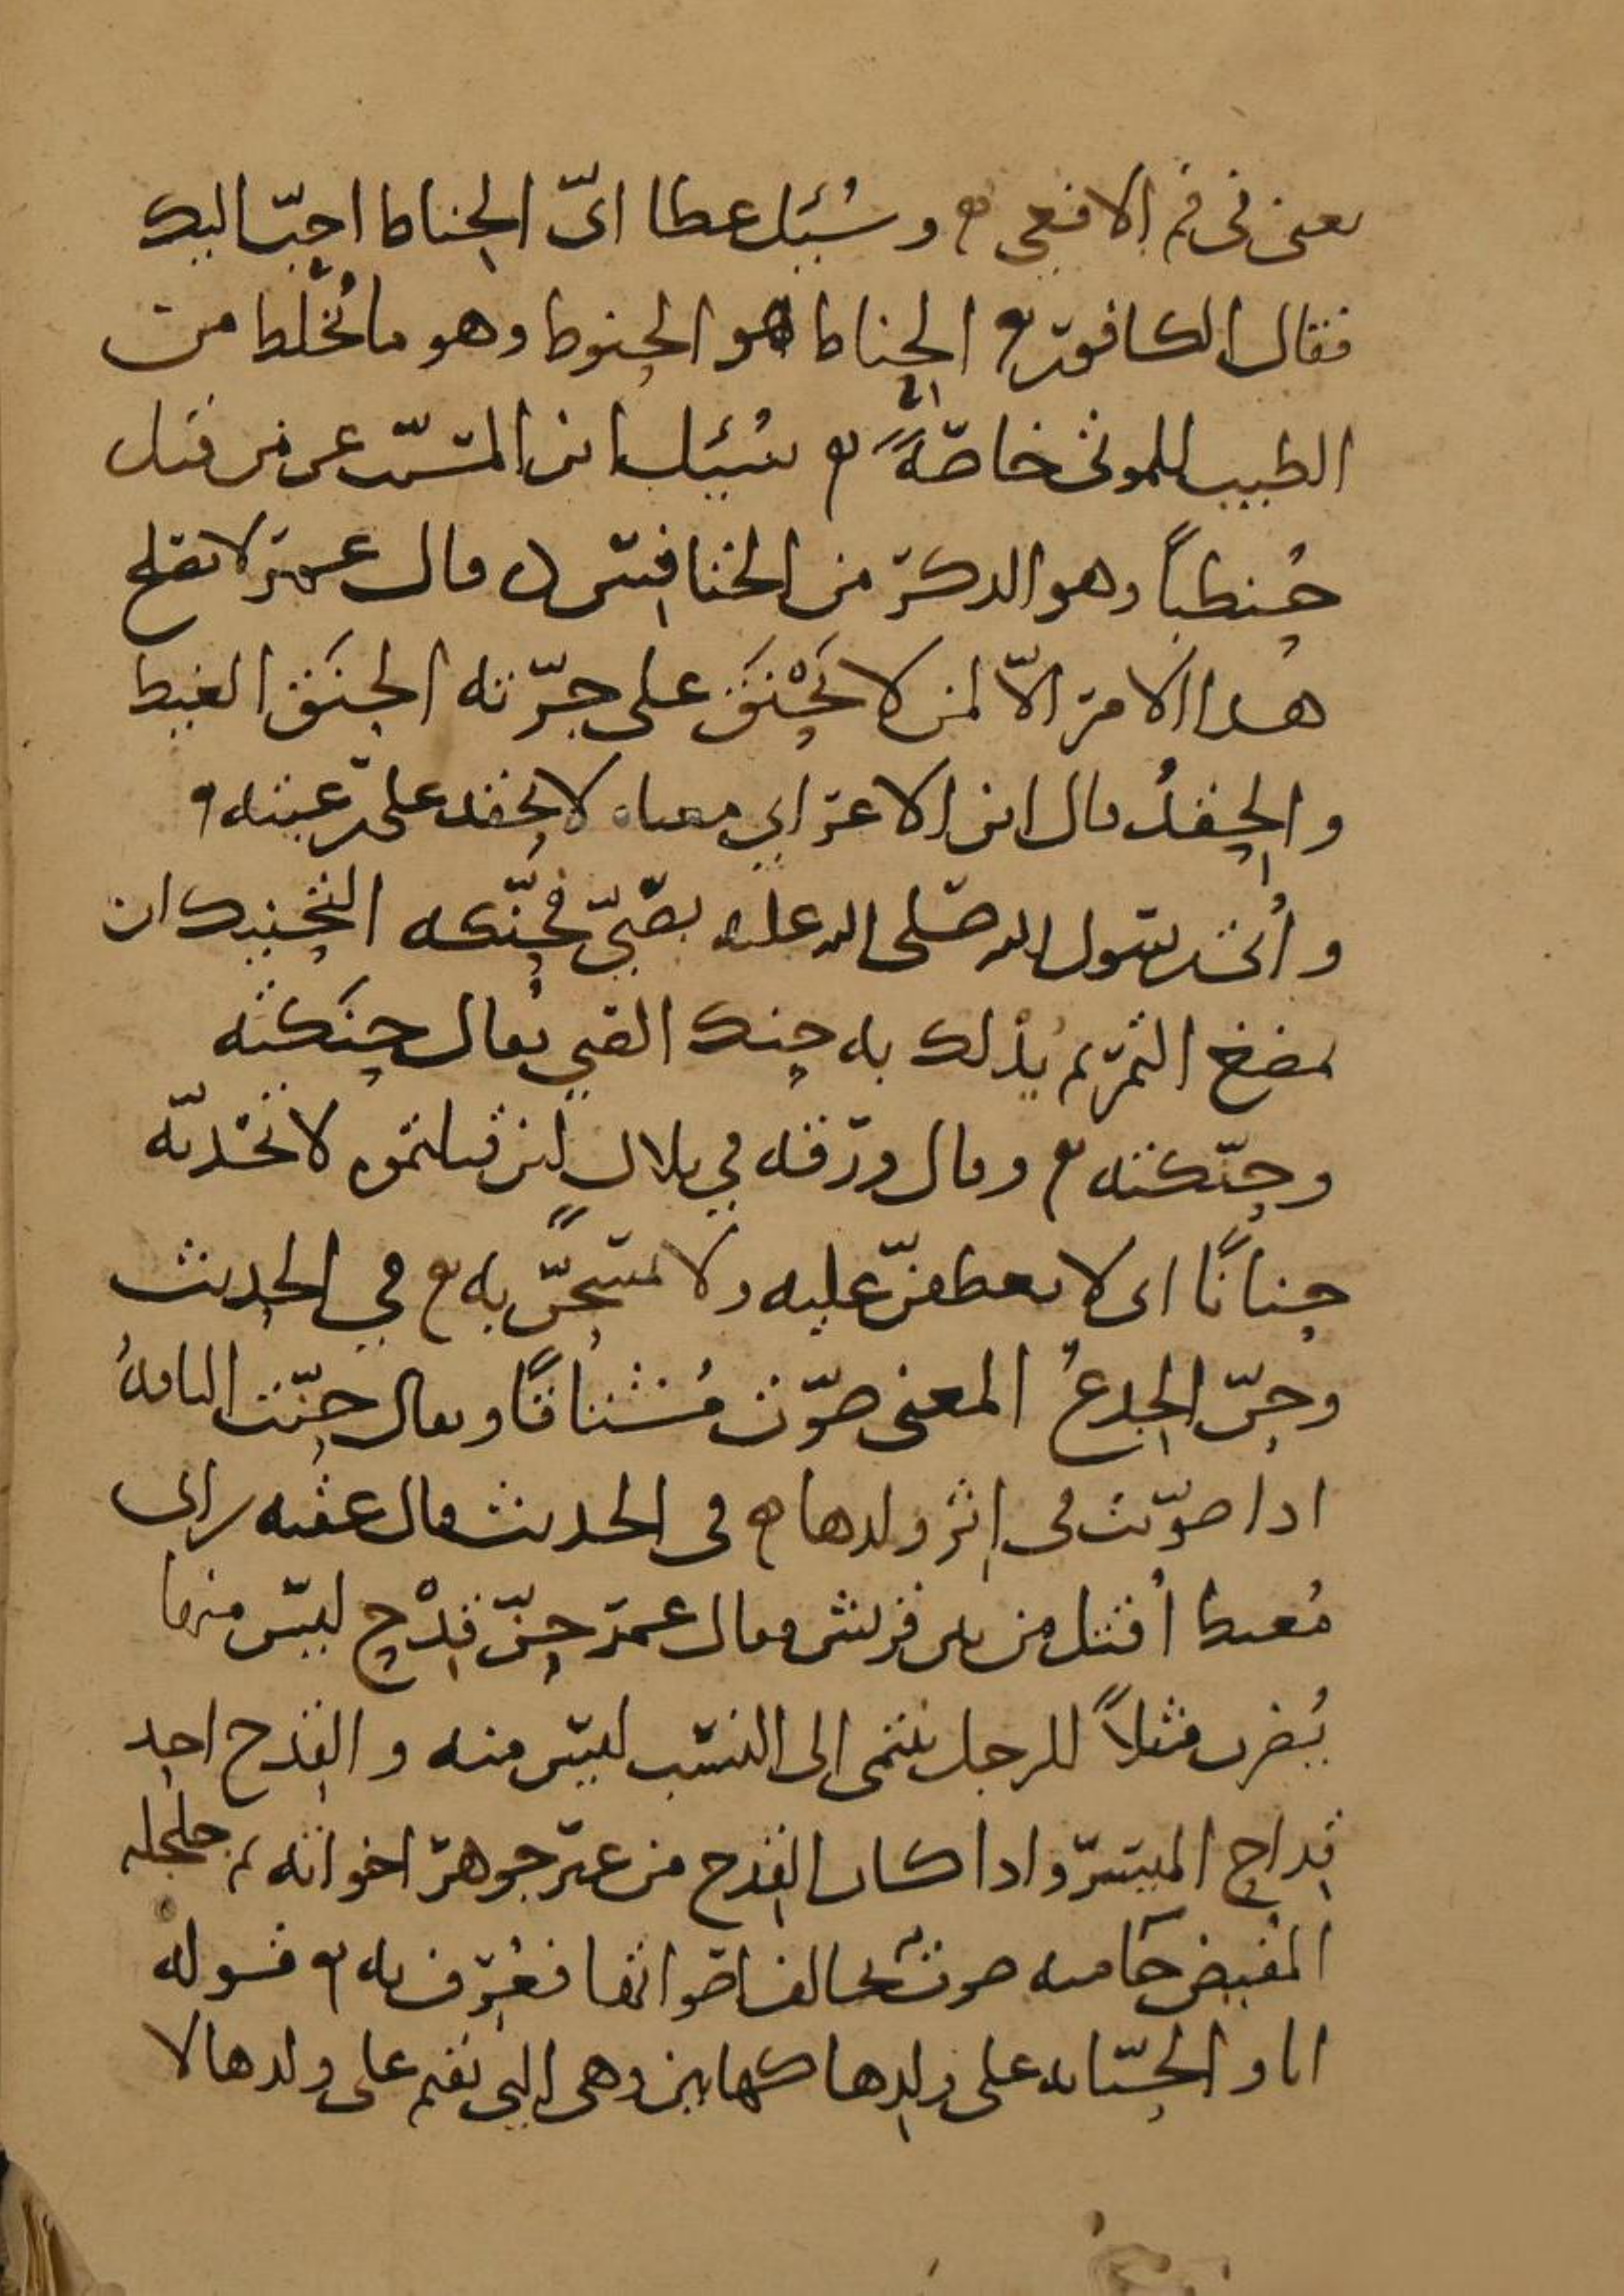 يعنى فى فم الافعى وسُئِل عطا اىّ الحناط احبّ اليك
فقال الكافور الحناط هو الحنوط وهو ما يُخلط من
الطيب للموتى خاصّةً سُئِل ابن المسيّب عن من قتل
حُنظباً وهو الذكر من الخنافس قال عمر لا يصلح
هذا الامر الاّ لمن لا يَحْنَق على جِرّته الحَنَق الغيظ
والحِقدُ قال ابن الاعرابي معناه لا يحقد على رعيته
وأتى رسول الله صلى الله عليه بصبيّ فحنّكه التحنيك ان
يمضغ التمر ثم يُدلك به حنك الصبي يُقال حنَكته
وحنّكته وقال ورقه في بلالٍ لئن قتلتموه لاتخذنّه
حنانًا اى لاتعطفنّ عليه ولاتمسحنّ به في الحديث
وحنّ الجذعُ المعنى صوّت مُشتاقًا ويقال حنّت الناقةُ
اذا صوّتت فى اثر ولدها فى الحديث قال عقبه بن ابى
مُعيط أقتل من بين قريش فقال عمر حنّ قِدْح ليس منها
يُضرب مثلاً للرجل ينتمى الى النسب ليس منه والقِدح احد
قِداح الميسر واذا كان القِدح من غير جوهر اخواته ثم جلجله
المفيض حامنه صوت يخالف اصواتها فعُرف به قوله
انا والحنّانه على ولدها كهاتين وهى التى تقيم على ولدها لا